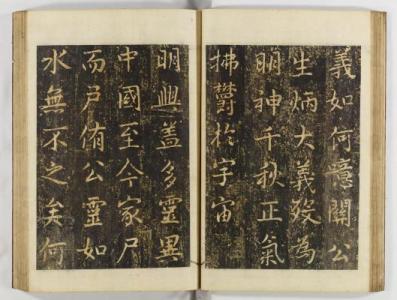 義如何噫關公
生炳大義歿為
明神千秋正氣
拂鬱於宇宙
明興蓋多靈異
中國至今家尸
而戶侑公靈如
水無不之矣何